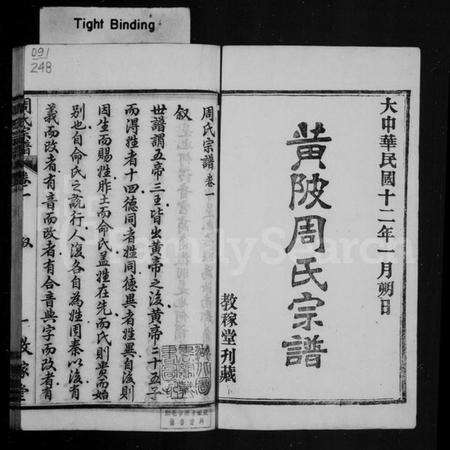 Tight Binding
091
248
大中華民國十二年一月朔日
黃陂周氏宗譜
教稼堂刊藏
周氏宗譜卷一
叙
世譜謂五帝三王皆出黃帝之後黃帝二十五子
而得姓者十四德同者姓同德異者姓異自後則
因生而賜姓胙土而命氏蓋姓在先而氏則
別也自命氏之說行人復各自為姓周秦以後有
義而改者有音而改者有合音與字而改者有
周氏宗譜 卷一 叙 一 教稼堂
FamilySearch